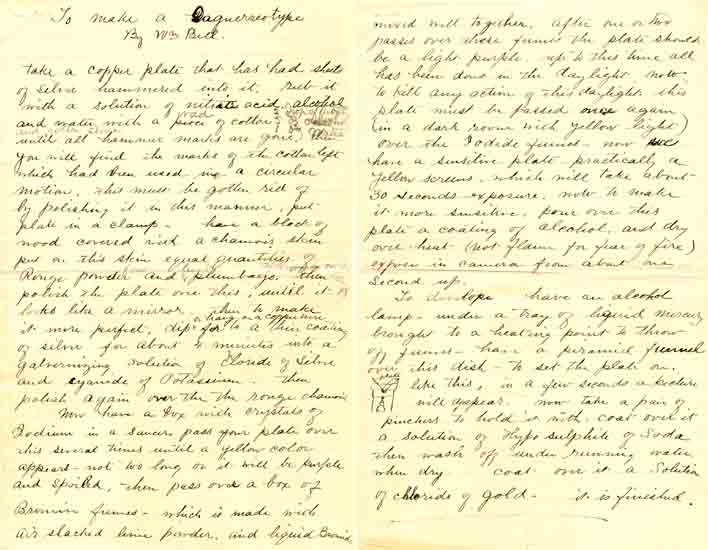 To make a Daguerreotype
By Wm Bell.
take a copper plate that has had sheets
of Silver hammered into it, rub it
with a solution of nitric acid, alcohol
and water with a piece of cotton
until all hammer marks are gone, Then
You will find the marks of the cotton left
which had been used in a circular
motion, this must be gotten rid of
by polishing it in this manner, put
plate in a clamp - have a block of
wood covered with a chamois skin
put on this skin equal quantities of
Rouge powder and plumbago. then
polish the plate one this, until it
looks like a mirror. then to make
it more perfect, dip for a thin coating
of silver for about 2 minutes into a
Galvernizing solution of Cloride of Silver
and cyanide of Potassium. then
polish again over the the rouge chamois
Now have a box with crystals of
Iodium in a saucer, pass your plate over
this several times until a yellow color
appears - not too long or it will be purple
and spoiled, then pass over a box of
Bromin fumes - which is made with
air slacked lime powder, and liquid Bromid
mixed well together. after one or two
passes over these fumes the plate should
be a light purple. up to this time all
has been done in the daylight. now
to kill any action of this daylight. this
plate must be passed once again
(in a dark room with yellow light)
over the Iodide fumes - now we
have a sensitive plate - practically a
yellow screen. which will take about
30 seconds exposure. now to make
it more sensitive. pour over this
plate a coating of alcohol, and dry
over heat (not flame for fear of fire)
expose in camera from about one
Second up.
To develope have an alcohol
lamp - under a tray of liquid mercury
brought to a heating point to throw
off fumes - have a piramid funnel
over this dish - to set the plate on.
like this, in a few seconds a picture
will appear. now take a pair of
pinchers to hold it with. coat over it
a solution of Hypo sulphite of Soda
then wash off under running water,
when dry coat over it a Solution
of chloride of gold - it is finished.